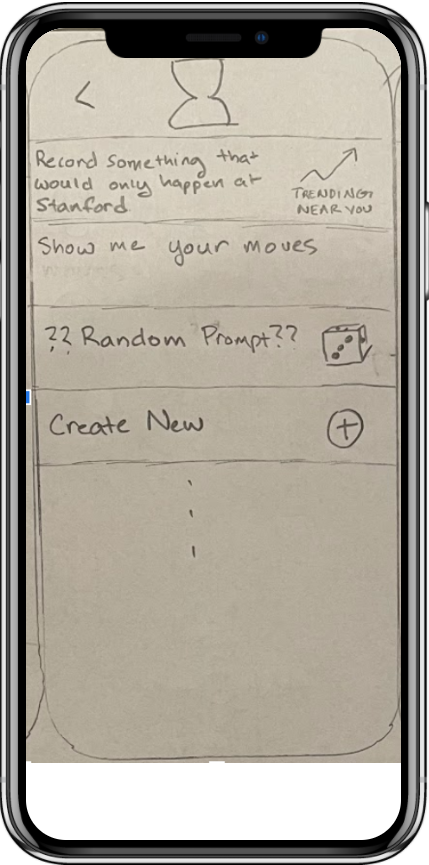 Record something that
would only happen at
Stanford
TRENDING
NEAR YOU
Show me your moves
?? Random Prompt??
Create New